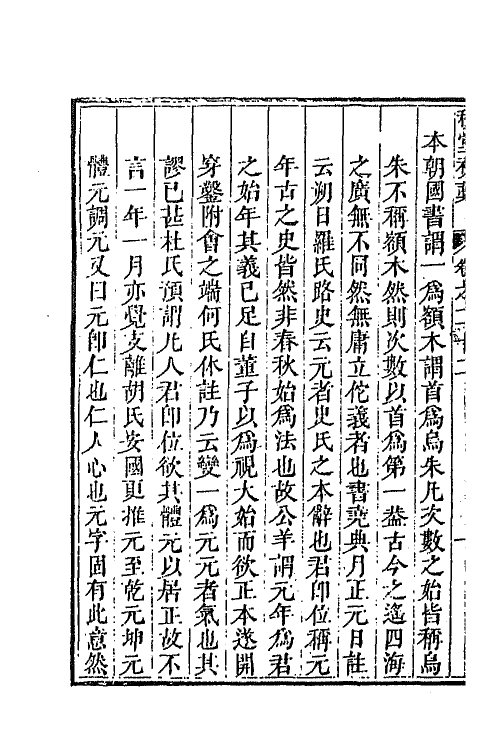 本朝國書謂一為額木謂首為烏朱凡次數之始皆稱烏
朱不稱額木然則次數以首為第一葢古今之遙四海
之廣無不同然無庸立佗義者也書堯典月正元日註
云朔日羅氏路史云元者史氏之本辭也君卽位稱元
年古之史皆然非春秋始為法也故公羊謂元年為君
之始年其義已足自董子以為視大始而欲正本遂開
穿鑿附會之端何氏休註乃云變一為元元者氣也其
謬已甚杜氏預謂凡人君卽位欲其體元以居正故不
言一年一月亦覺支離胡氏安國更推元至乾元坤元
體元調元又曰元卽仁也仁人心也元字固有此意然